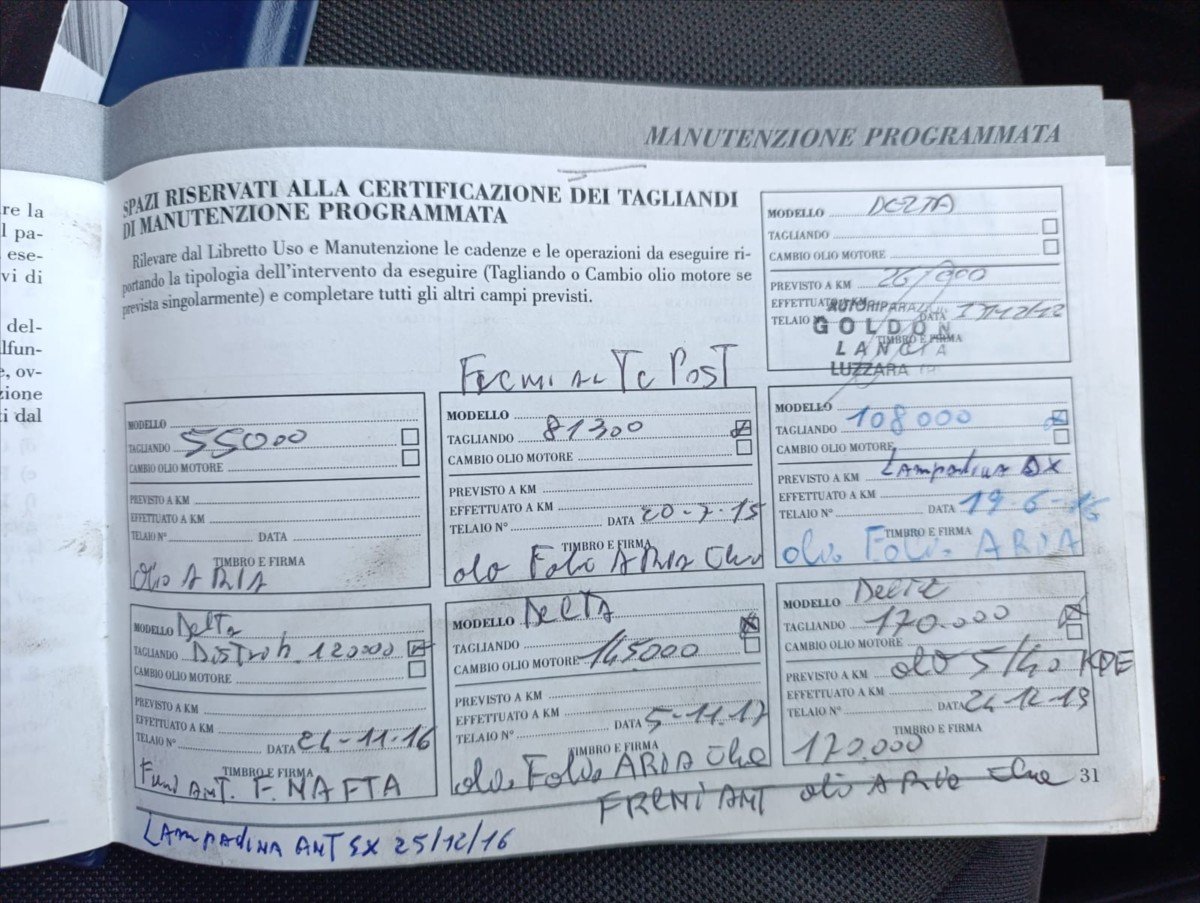 re la
l pa-
ese-
vi di
del-
lfun-
e, ov-
zione
ti dal
MANUTENZIONE PROGRAMMATA
SPAZI RISERVATI ALLA CERTIFICAZIONE DEI TAGLIANDI
DI MANUTENZIONE PROGRAMMATA
Rilevare dal Libretto Uso e Manutenzione le cadenze e le operazioni da eseguire ri-
portando la tipologia dell'intervento da eseguire (Tagliando o Cambio olio motore se
prevista singolarmente) e completare tutti gli altri campi previsti.
MODELLO DELTA
TAGLIANDO
CAMBIO OLIO MOTORE
PREVISTO A KM 26/000
EFFETTUATO A KM
TELAIO DATA
TIMBRO E FIRMA
GOLDON
LANCIA
LUZZARA
MODELLO
TAGLIANDO 55000
CAMBIO OLIO MOTORE
PREVISTO A KM
EFFETTUATO A KM
TELAIO N° DATA
TIMBRO E FIRMA
olio ARIA
POST
MODELLO
TAGLIANDO 81300
CAMBIO OLIO MOTORE
PREVISTO A KM
EFFETTUATO A KM
TELAIO N° DATA 20-7-15
TIMBRO E FIRMA
olo Folio ARIA
MODELLO
TAGLIANDO 108000
CAMBIO OLIO MOTORE
PREVISTO A KM LAmpadina DX
EFFETTUATO A KM
TELAIO N° DATA 19-6-16
TIMBRO E FIRMA
ARIA
MODELLO Delta
TAGLIANDO 120000
CAMBIO OLIO MOTORE
PREVISTO A KM
EFFETTUATO A KM
TELAIO N° DATA 24-11-16
TIMBRO E FIRMA
ANT. F. NAFTA
MODELLO DELTA
TAGLIANDO
CAMBIO OLIO MOTORE 145000
PREVISTO A KM
EFFETTUATO A KM
TELAIO N° DATA 5-11-17
TIMBRO E FIRMA
ARIA
FRENI ANT
MODELLO Delta
TAGLIANDO 170.000
CAMBIO OLIO MOTORE
PREVISTO A KM olo 5/40
EFFETTUATO A KM
TELAIO N° DATA
TIMBRO E FIRMA
170.000
olio ARIA
LAMPADINA ANT SX 25/12/16
31